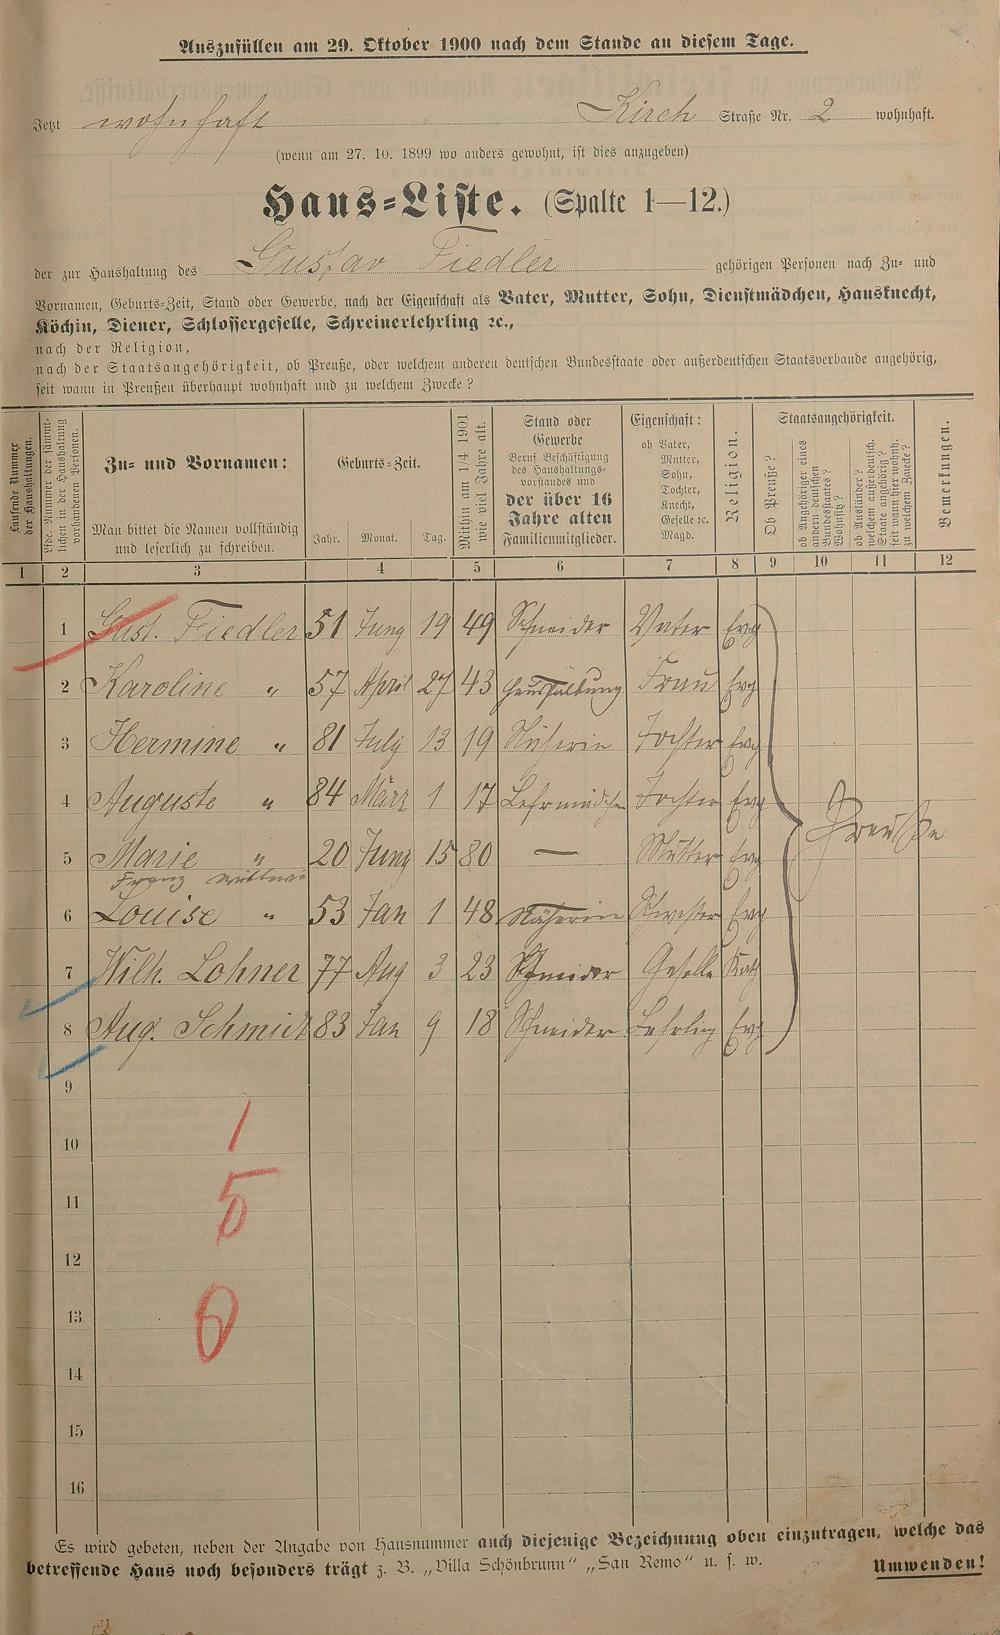 Auszufüllen am 29. Oktober 1900 nach dem Stande an diesem Tage.
Jetzt wohnhaft Kirch Straße Nr. 2 wohnhaft.
(wenn am 27. 10. 1899 wo anders gewohnt, ist dies anzugeben)
Haus-Liste. (Spalte 1—12.)
der zur Haushaltung des Gustav Fiedler gehörigen Personen nach Zu- und
Vornamen, Geburts-Zeit, Stand oder Gewerbe, nach der Eigenschaft als Vater, Mutter, Sohn, Dienstmädchen, Hausknecht,
Köchin, Diener, Schlossergeselle, Schreinerlehrling ꝛc.,
nach der Religion,
nach der Staatsangehörigkeit, ob Preuße, oder welchem anderen deutschen Bundesstaate oder außerdeutschen Staatsverbande angehörig,
seit wann in Preußen überhaupt wohnhaft und zu welchem Zwecke?
Laufende Nummer
der Haushaltungen.
Lfde. Nummer der sämmt-
lichen in der Haushaltung
vorhandenen Personen.
Zu- und Vornamen:
Man bittet die Namen vollständig
und leserlich zu schreiben.
Geburts-Zeit.
Jahr. Monat. Tag.
Mithin am 1/4 1901
wie viel Jahre alt.
Stand oder
Gewerbe
Beruf Beschäftigung
des Haushaltungs-
vorstandes und
der über 16
Jahre alten
Familienmitglieder.
Eigenschaft:
ob Vater,
Mutter,
Sohn,
Tochter,
Knecht,
Geselle ꝛc.
Magd.
Religion.
Staatsangehörigkeit.
Ob Preuße?
ob Angehöriger eines
andern deutschen
Bundesstaates?
Wohnsitz?
ob Ausländer?
welchem außerdeutsch.
Staate angehörig?
seit wann hier wohnh.
zu welchem Zwecke?
Bemerkungen.
1 2 3 4 5 6 7 8 9 10 11 12
1 Gust. Fiedler 51 Juny 19 49 Schneider Vater Evg
2 Karoline " 57 April 27 43 Haushaltung Frau Evg
3 Hermine " 81 July 13 19 Näherin Tochter Evg
4 Auguste " 84 März 1 17 Lehrmädchen Tochter Evg
Preuße
5 Marie " 20 Juny 15 80 — Mutter Evg
Franz Wittwe
6 Louise " 53 Jan 1 48 Näherin Schwester Evg
7 Wilh. Lohner 77 Aug 3 23 Schneider Geselle Kath
8 Aug. Schmidt 83 Jan 9 18 Schneider Lehrling Evg
9
10 1
11 5
12
13 0
14
15
16
Es wird gebeten, neben der Angabe von Hausnummer auch diejenige Bezeichnung oben einzutragen, welche das
betreffende Haus noch besonders trägt z. B. „Villa Schönbrunn" „San Remo" u. s. w. Umwenden!